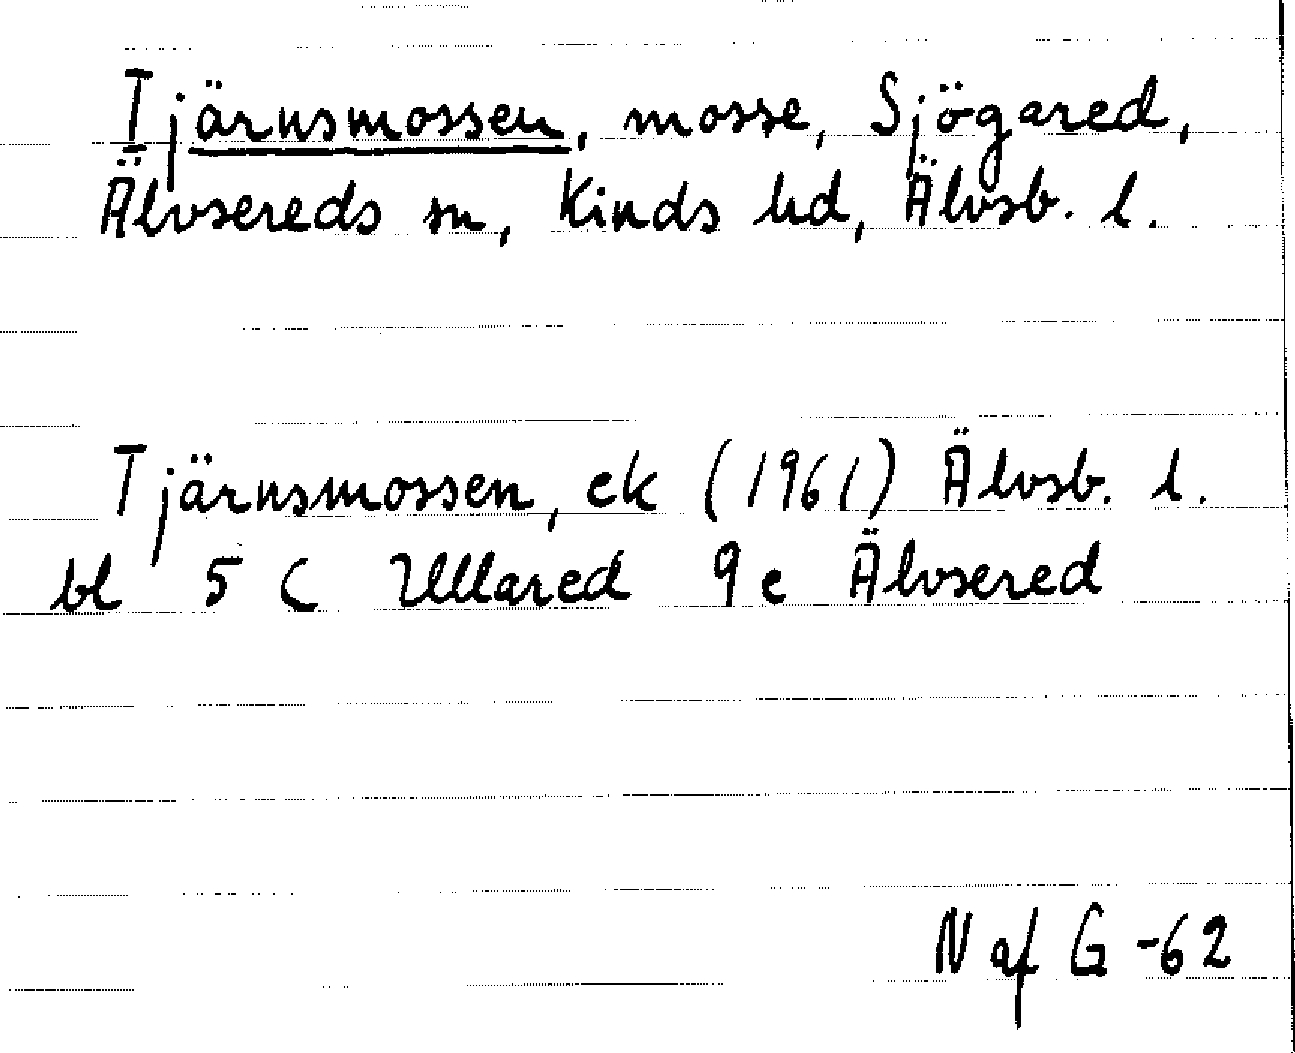 Tjärnsmossen, mosse, Sjögared,
Älvsereds sn, Kinds hd, Älvsb. l.
Tjärnsmossen, ek (1961) Älvsb. l.
bl 5 C Ullared 9 e Älvsered
N af G -62